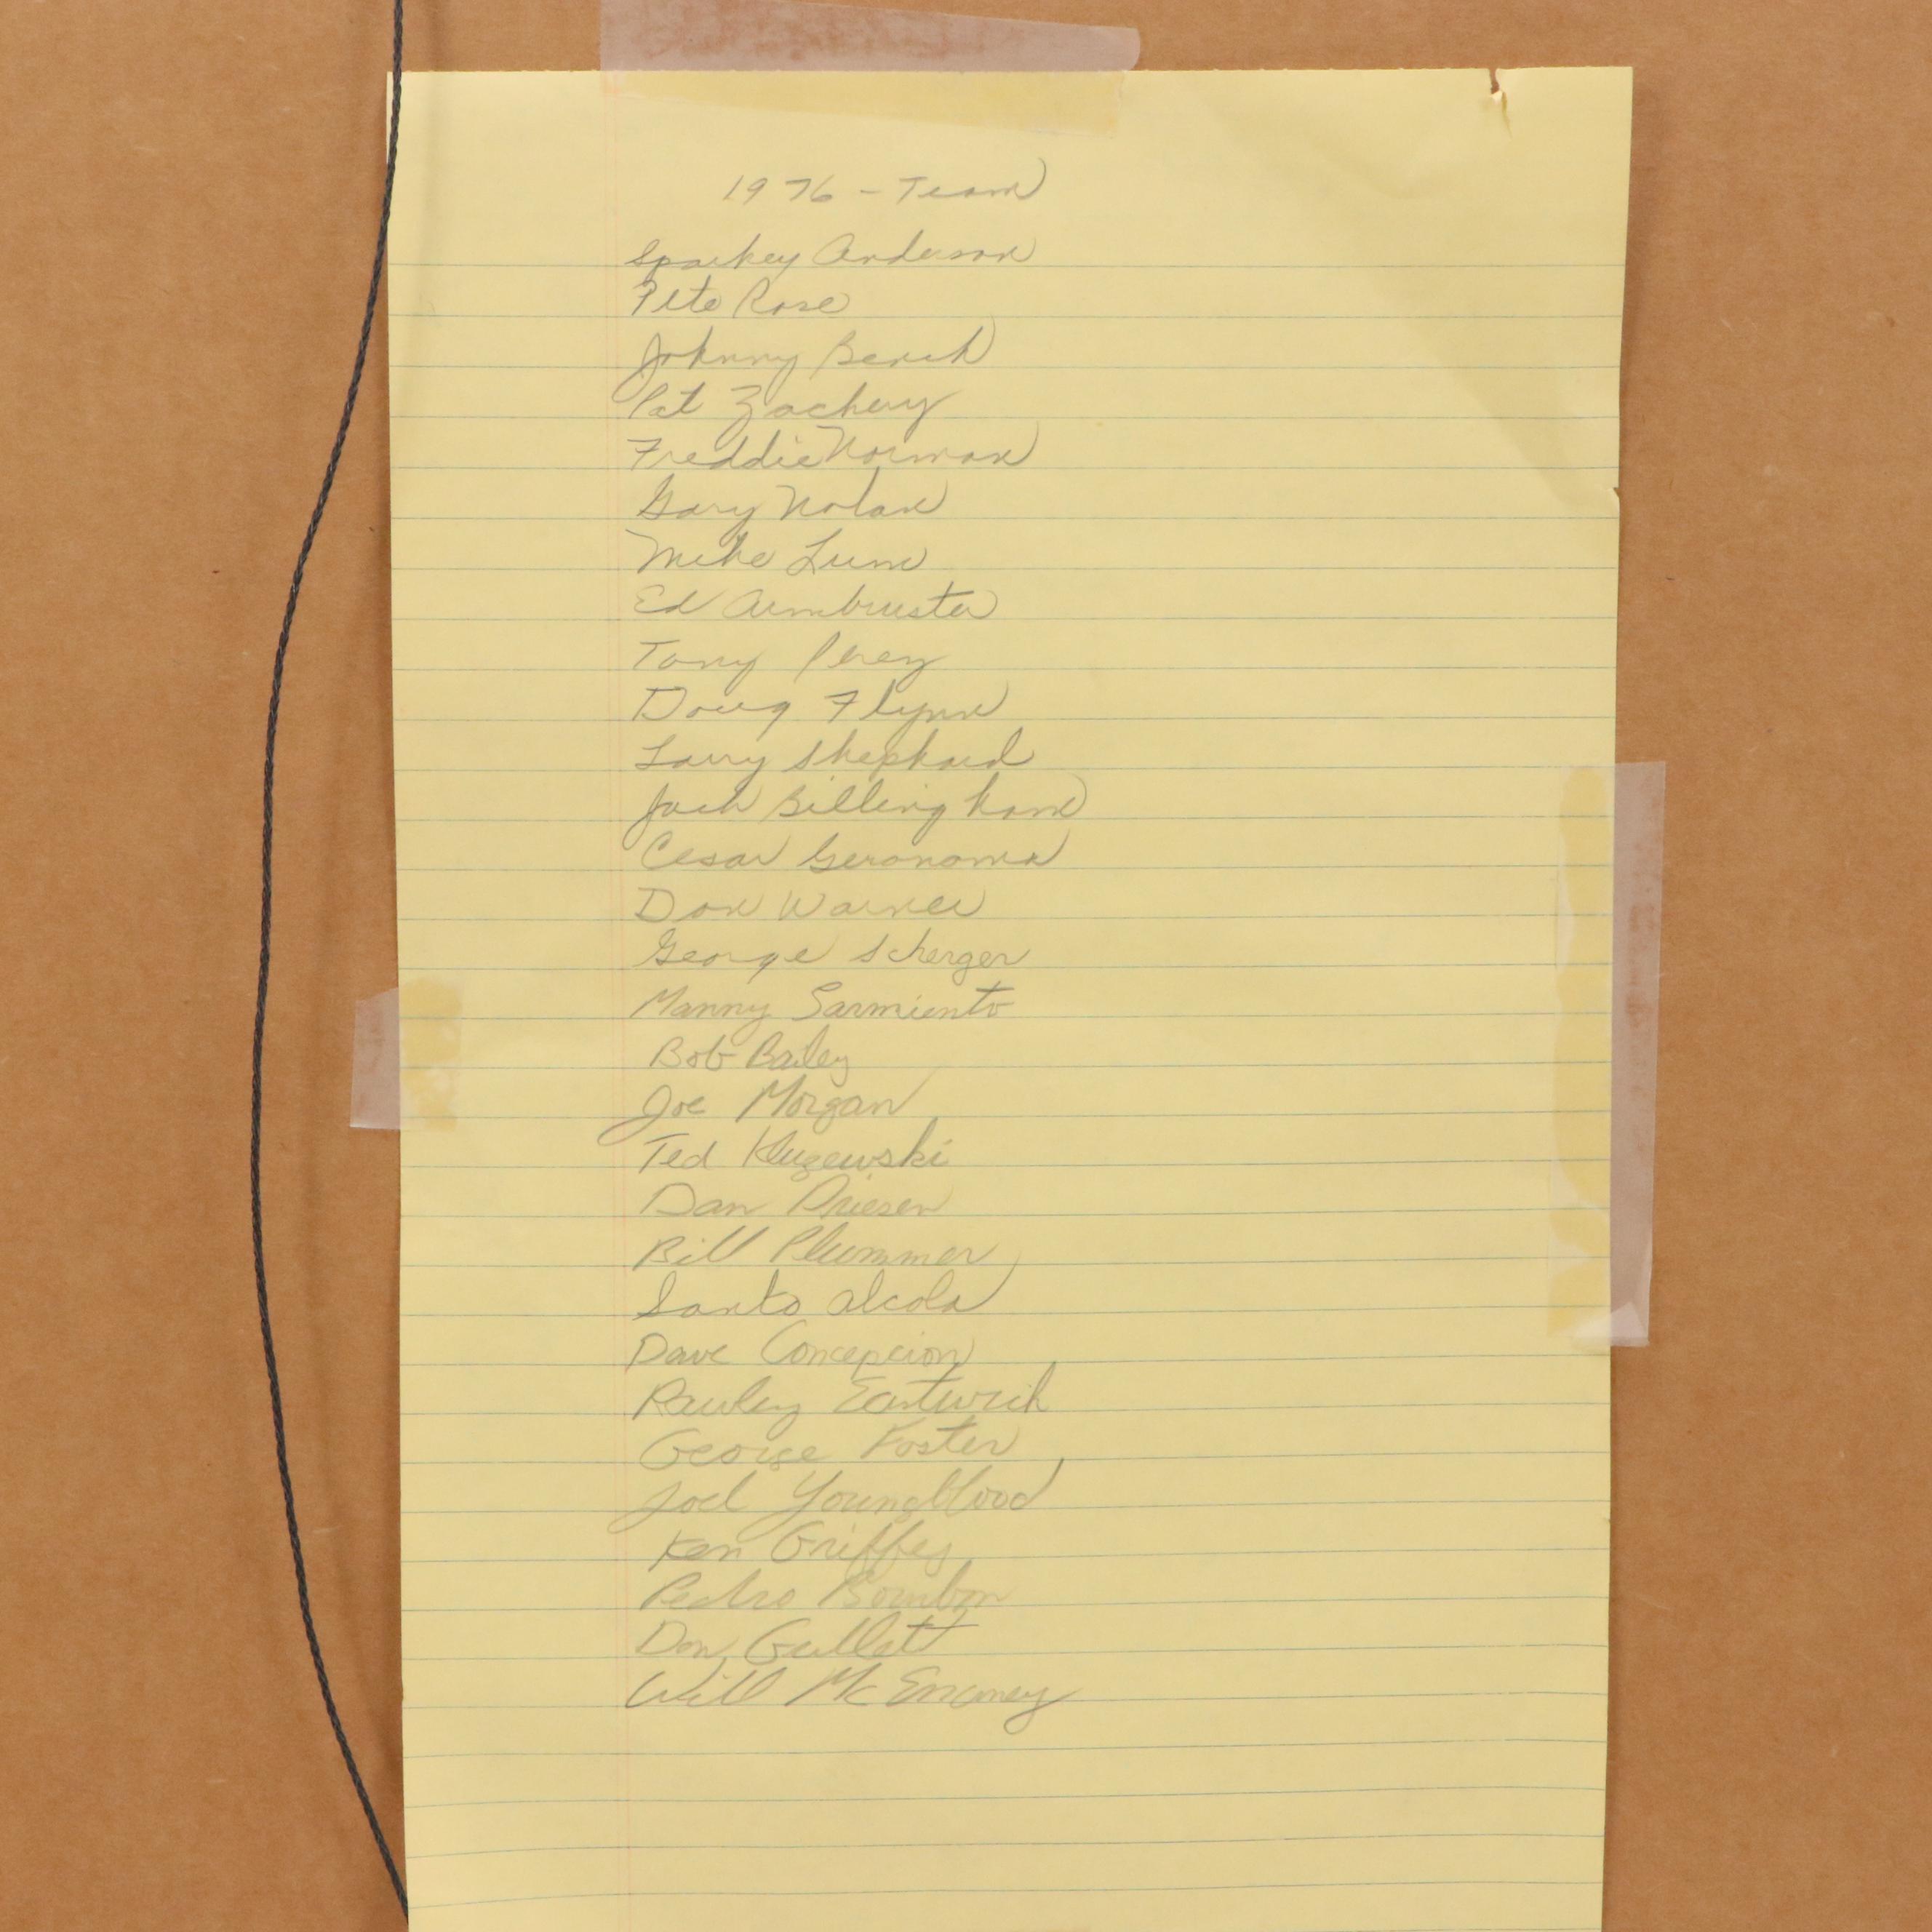 1976 - Team
Sparkey Anderson
Pete Rose
Johnny Bench
Pat Zachery
Freddie Norman
Gary Nolan
Mike Lum
Ed Armbruster
Tony Perez
Doug Flynn
Larry Shephard
Jack Billingham
Cesar Geronoma
Don Warner
George Scherger
Manny Sarmiento
Bob Bailey
Joe Morgan
Ted Kluzewski
Dan Driesen
Bill Plummer
Santo Alcola
Dave Concepcion
Rawley Eastwick
George Foster
Joel Youngblood
Ken Griffey
Pedro Bourbon
Don Gullet
Will McEnaney